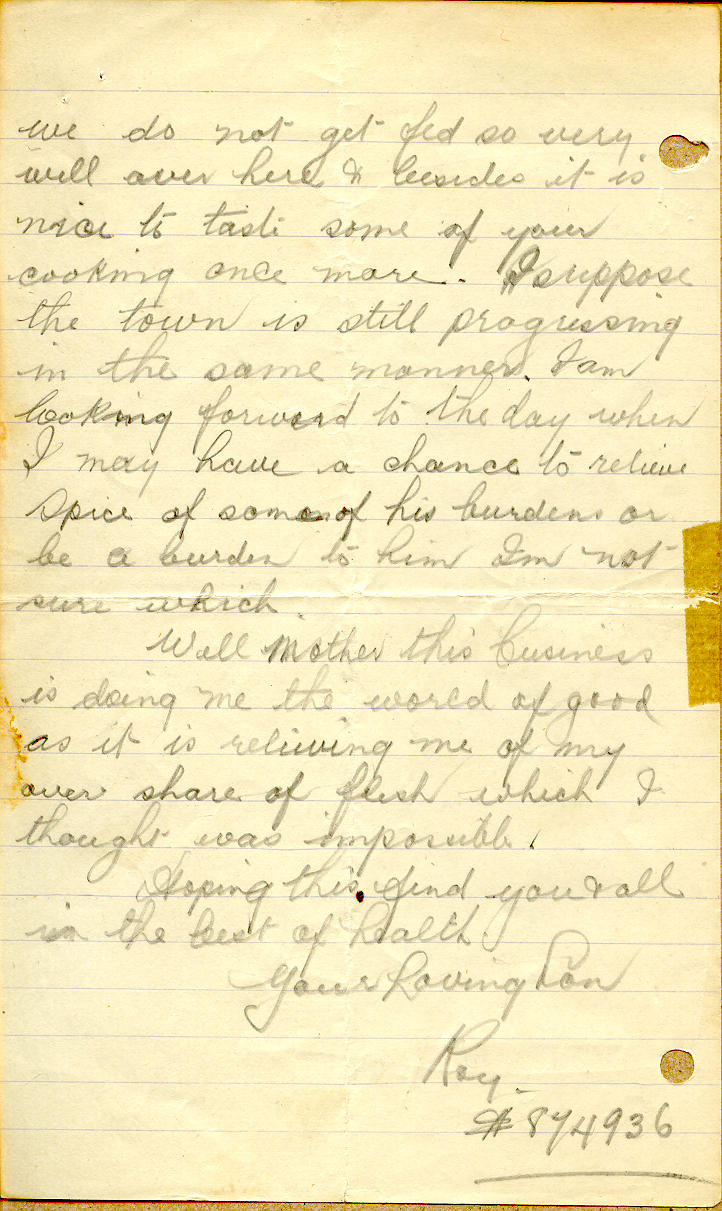 we do not get fed so very
well over here & besides it is
nice to taste some of your
cooking once more. I suppose
the town is still progressing
in the same manner. I am
looking forward to the day when
I may have a chance to relieve
Spice of some of his burdens or
be a burden to him I'm not
sure which.
Well Mother this business
is doing me the world of good
as it is relieving me of my
over share of flesh which I
thought was impossible.
Hoping this find you & all
in the best of health.
Your Loving Son
Roy.
# 874936